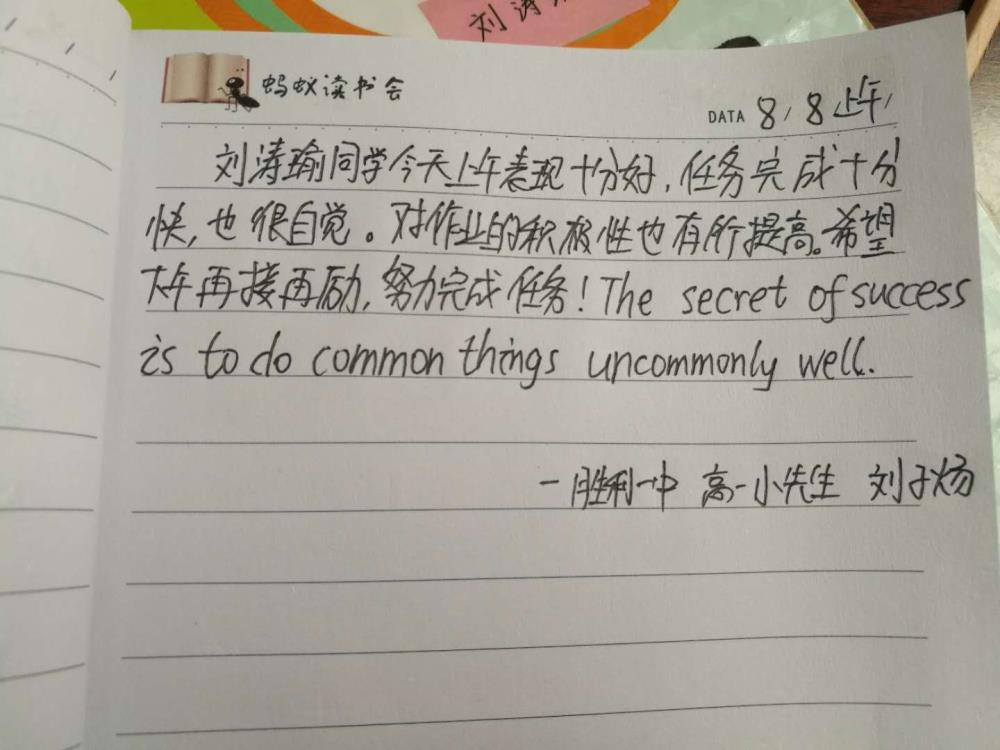 刘涛
蚂蚁读书会
DATA 8/8上午
刘涛瑜同学今天上午表现十分好，任务完成十分
快，也很自觉。对作业的积极性也有所提高。希望
下午再接再励，努力完成任务！The secret of success
is to do common things uncommonly well.
一胜利一中 高一小先生 刘子炀